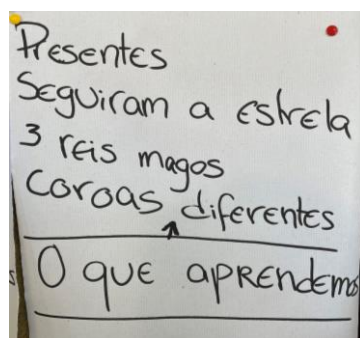 Presentes
Seguiram a estrela
3 reis magos
coroas diferentes
O que aprendemos